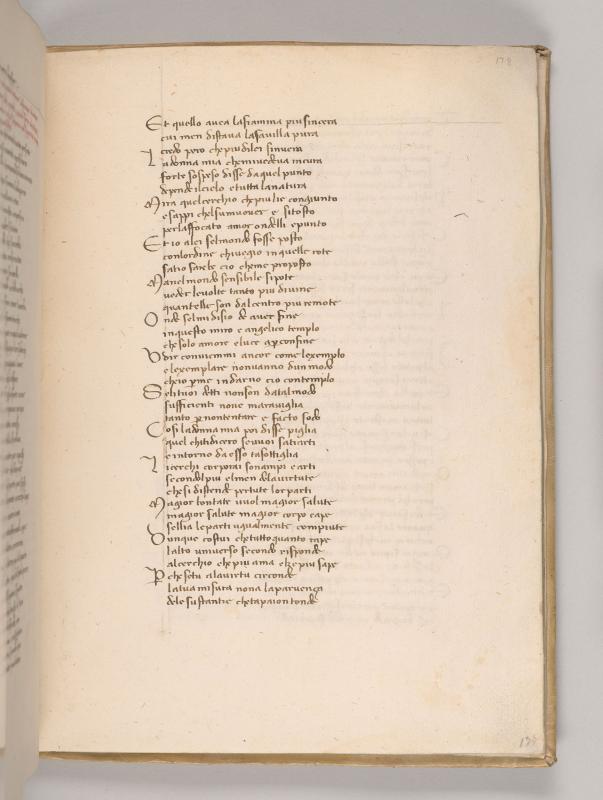 178
Et quello avea lafiamma piusincera
cui men distava lafavilla pura
credo pero chepiudilei sinvera
La donna mia chemivedeva incura
forte sospeso disse daquel punto
depende ilcielo etutta lanatura
Mira quelcerchio chepiulie congiunto
esappi chelsuomuover e sitosto
perlaffocato amor ondelli epunto
Et io alei selmondo fosse posto
conlordine chiveggio inquelle rote
satio sarebe cio cheme proposto
Manelmondo sensibile sipote
veder levolte tanto piu divine
quantelle son dalcentro piu remote
Onde selmi disio de aver fine
inquesto miro e angelico templo
chesolo amore eluce a per confine
Udir convienmi ancor come lexemplo
e lexemplare nonvanno dun modo
cheio pme indarno cio contemplo
Selituoi diti nonson datalmodo
sufficienti none maraviglia
tanto p nontentare e facto sodo
Cosi ladonna mia poi disse piglia
quel chitidicero sevuoi satiarti
e intorno da esso tasottiglia
Licerchi corporai sonampi earti
secondolpiu elmen delavirtute
chesi distende pertute lorparti
Magior bontate vuol magior salute
magior salute magior corpo cape
sellia leparti ugualmente compiute
Dunque costui chetuttoquanto rape
lalto universo secondo risponde
alcerchio chepiu ama elpiu sape
P chesetu alavirtu circonde
latua misura nona laparvenza
dele sustantie chetapaion tonde
178